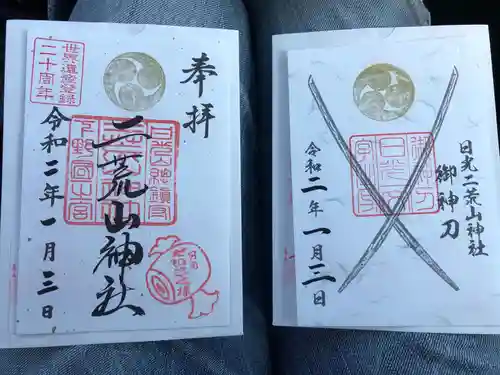 奉拝
二荒山神社
令和二年一月三日
世界遺産登録
二十周年
日光二荒山神社
御神刀
令和二年一月三日